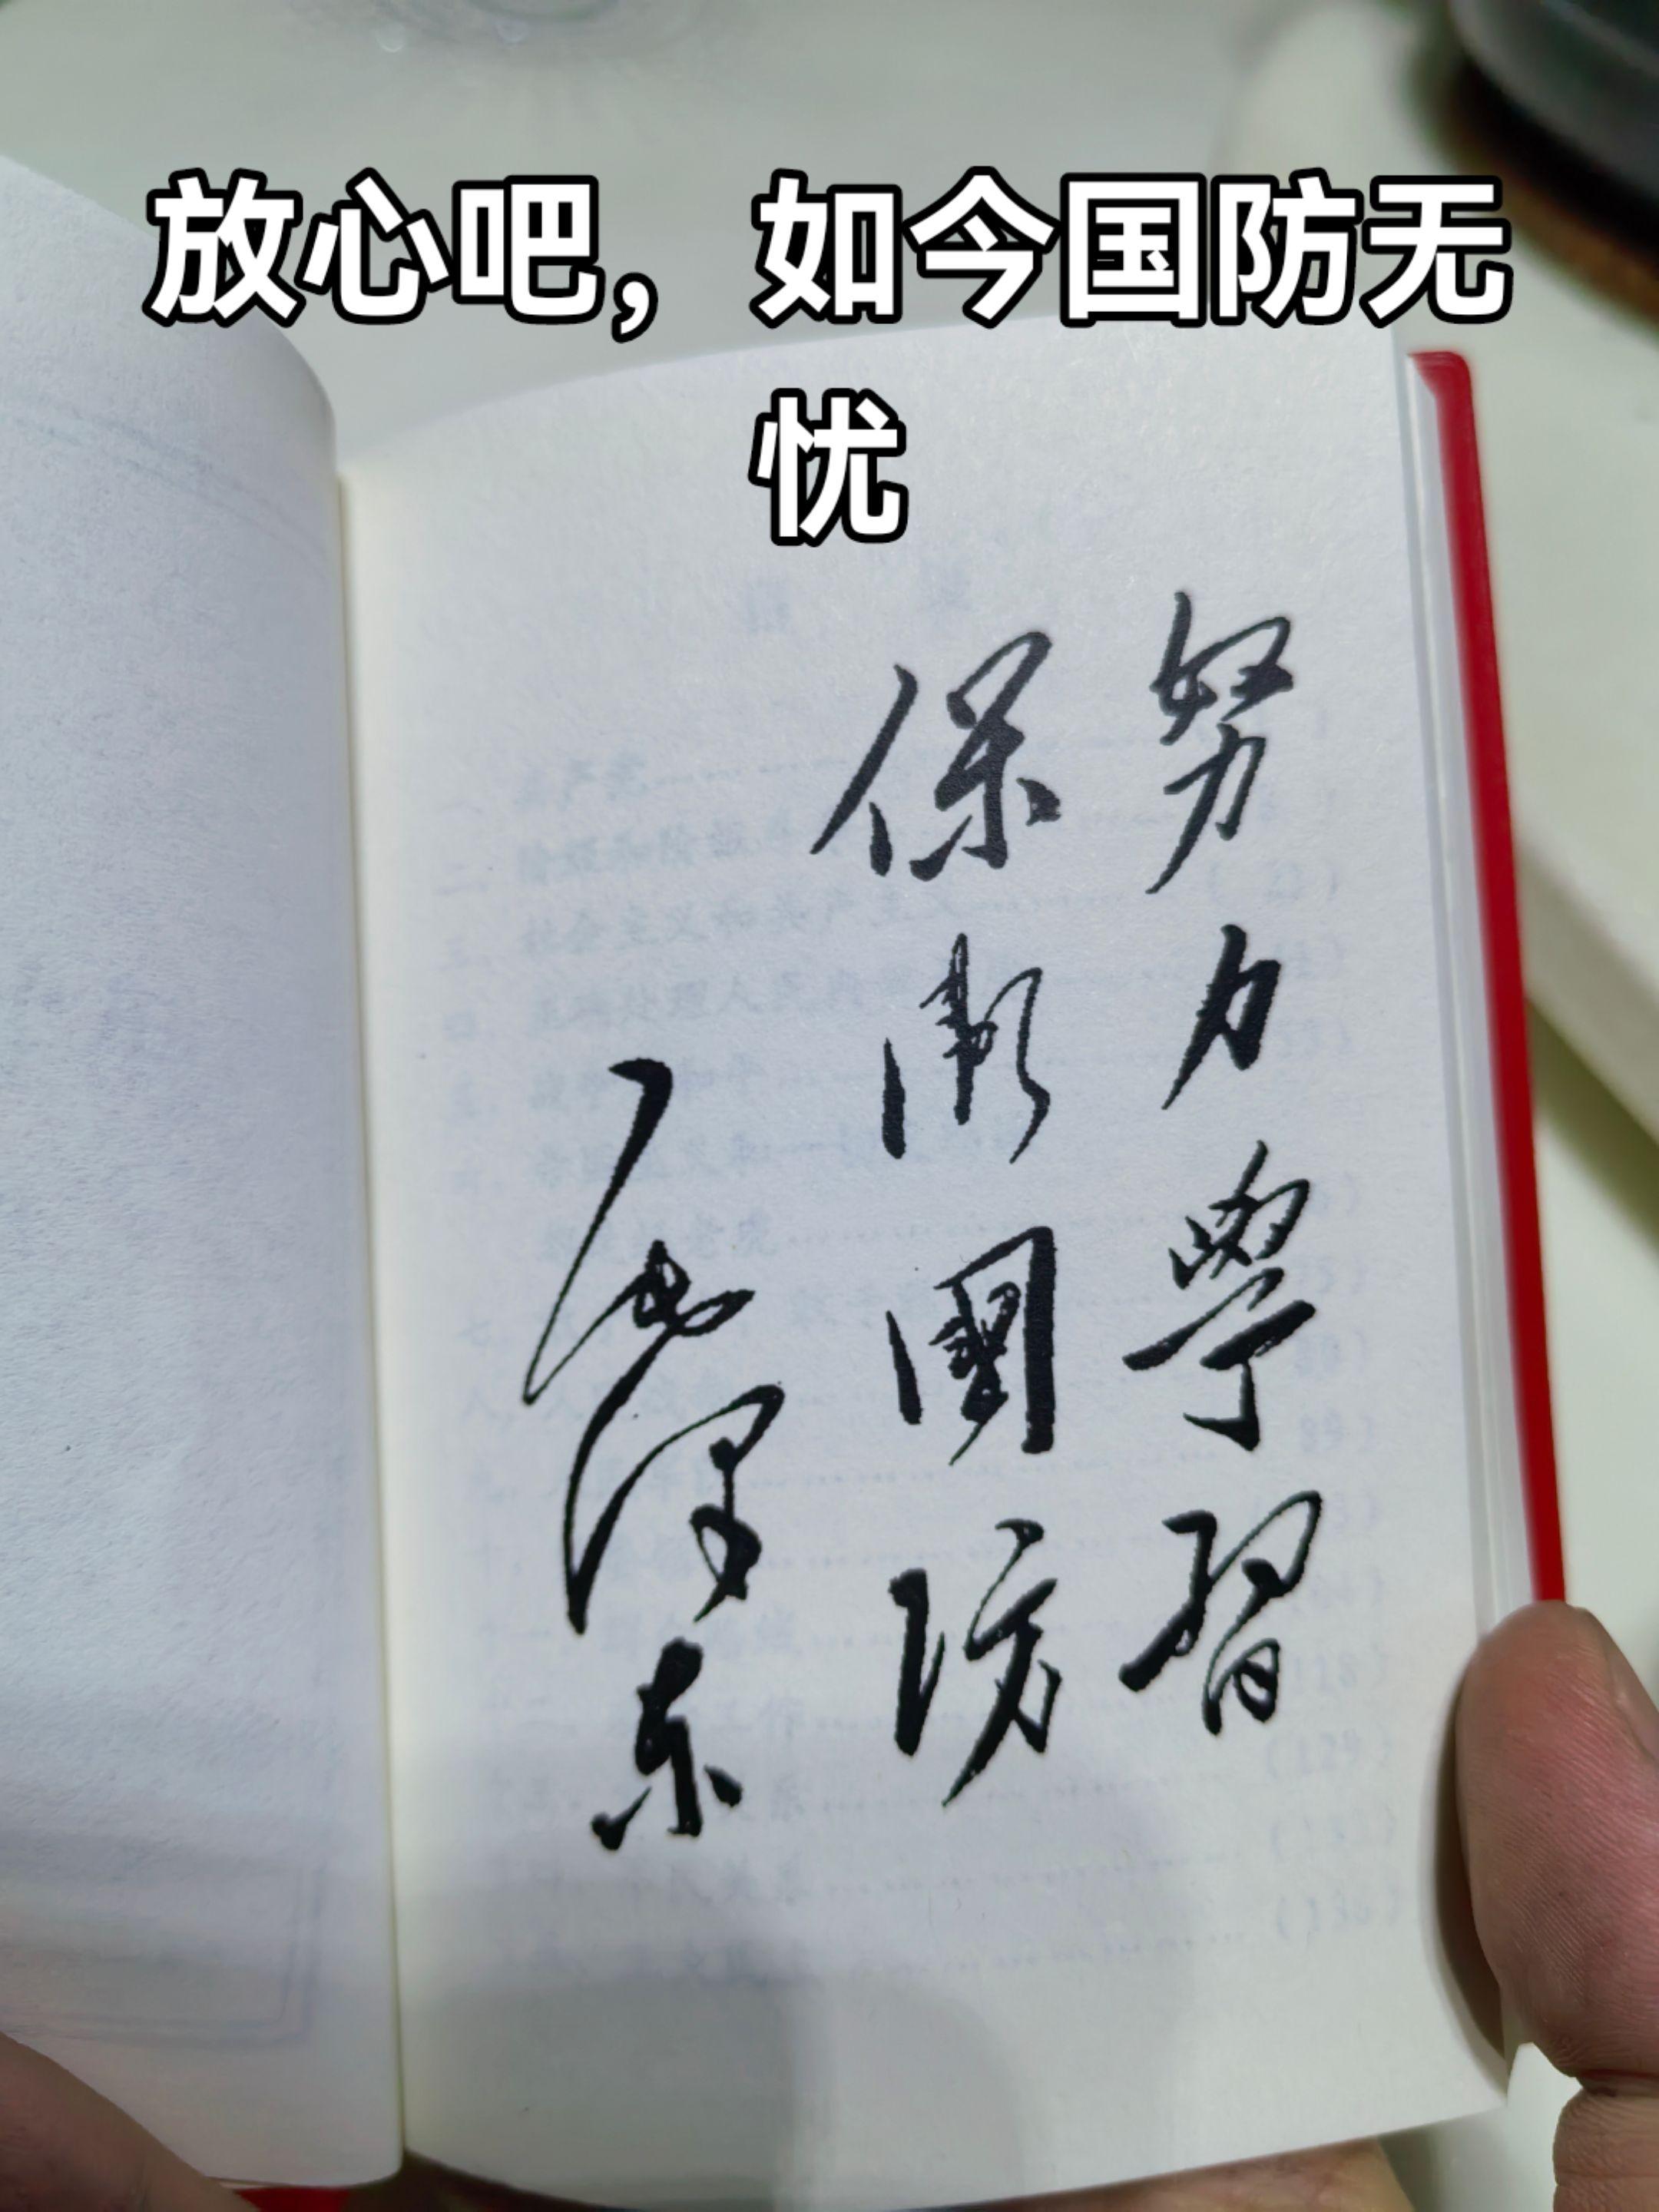 放心吧，如今国防无
忧
努力學習
保衛國防
毛泽东